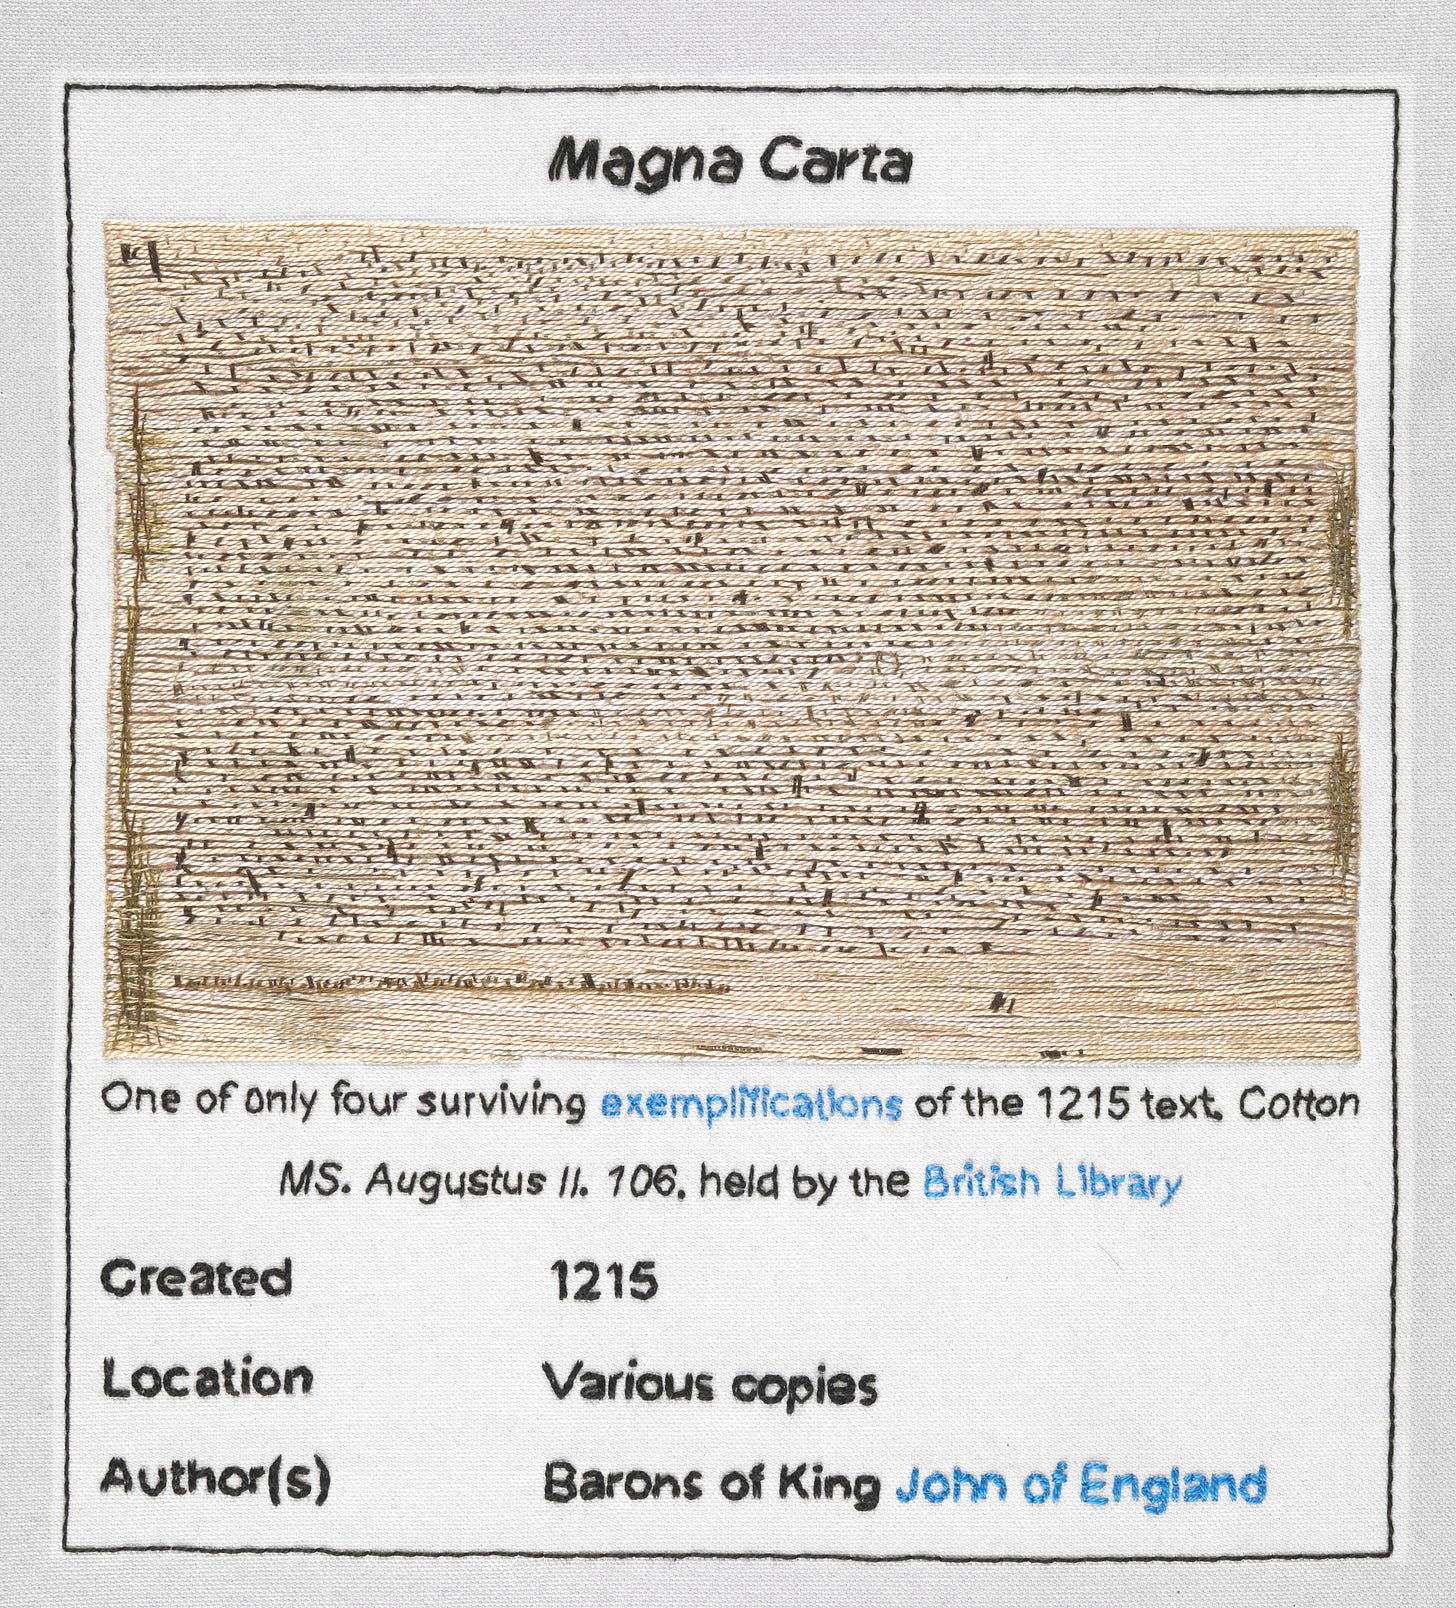 Magna Carta
One of only four surviving exemplifications of the 1215 text, Cotton
MS. Augustus II. 106, held by the British Library
Created 1215
Location Various copies
Author(s) Barons of King John of England